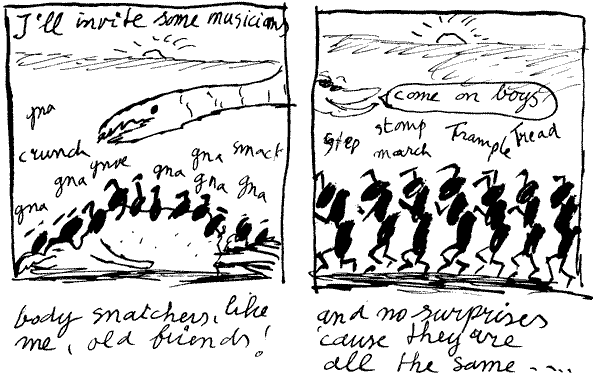 I'll invite some musicians
gna
crunch
gnve
gna
gna
gna
gna
smack
gna
gna
body snatchers, like
me, old friends!
come on boys!
step
stomp
march
Trample
Tread
and no surprises
'cause they are
all the same ....